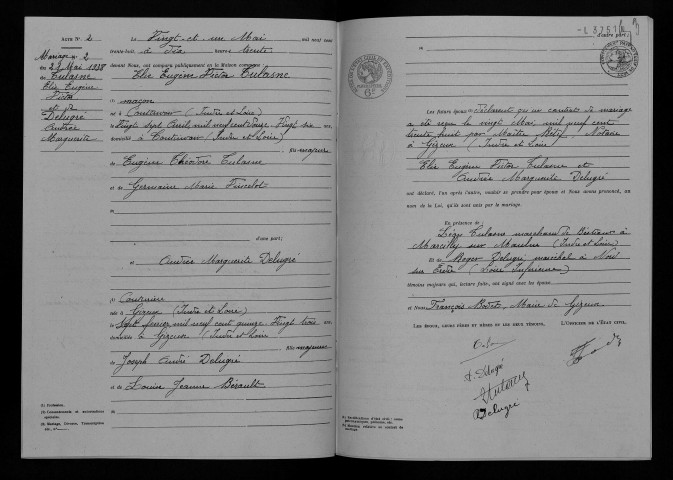 ACTE N° 2
Mariage n° 2
du 21 Mai 1938
Tulasne
Elie Eugène
Victor
et de
Delugré
Andrée
Marguerite
Le Vingt et un Mai mil neuf cent
trente-huit à dix heures trente
devant Nous, ont comparu publiquement en la Maison commune :
Elie Eugène Victor Tulasne
(1) maçon
né à (Indre et Loire)
le Vingt sept Avril mil neuf cent douze Vingt six ans,
domicilié à (Indre et Loire)
fils majeur
de Eugène Théodore Tulasne
et de Germaine Marie
d'une part;
et Andrée Marguerite Delugré
(1) Couturière
née à Gizeux (Indre et Loire)
le Sept février mil neuf cent quinze Vingt trois ans,
domiciliée à Gizeux (Indre et Loire)
fille majeure
de Joseph André Delugré
et de Louise Jeanne Bérault
(1) Profession.
(2) Consentements et autorisations spéciales.
(3) Mariage, Divorce, Transcription etc., etc.
d'autre part;
Les futurs époux déclarent qu'un contrat de mariage
a été reçu le vingt Mai mil neuf cent
trente huit par Maître Notaire
à Gizeux (Indre et Loire
Elie Eugène Victor Tulasne et
Andrée Marguerite Delugré
ont déclaré, l'un après l'autre, vouloir se prendre pour époux et Nous avons prononcé, au
nom de la Loi, qu'ils sont unis par le mariage.
En présence de :
Tulasne marchand de Bestiaux à
Marcilly sur Maulne (Indre et Loire)
et de Roger Delugré maréchal à Nort
sur Erdre (Loire Inférieure)
témoins majeurs qui, lecture faite, ont signé avec les époux
et Nous François Maire de Gizeux
LES ÉPOUX, LEURS PÈRES ET MÈRES OU LES DEUX TÉMOINS, L'OFFICIER DE L'ÉTAT CIVIL,
A. Delugré
Delugré